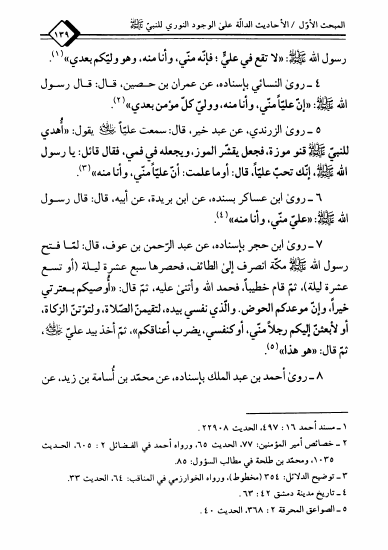 المبحث الأوّل / الأحاديث الدالّة على الوجود النوري للنبيّ ﷺ
١٣٩
رسول الله ﷺ: «لا تقع في عليّ؛ فإنّه منّي، وأنا منه، وهو وليّكم بعدي»(١).
٤ ـ روى النسائي بإسناده، عن عمران بن حصين، قال: قال رسول
الله ﷺ: «إنّ عليّاً منّي، وأنا منه، ووليّ كلّ مؤمن بعدي»(٢).
٥ ـ روى الزرندي، عن عبد خير، قال: سمعت عليّاً يقول: «أُهدي
للنبيّ ﷺ قنو موزة، فجعل يقشّر الموز، ويجعله في فمي، فقال قائل: يا رسول
الله ﷺ، إنّك تحبّ عليّاً، قال: أوما علمت: أنّ عليّاً منّي، وأنا منه»(٣).
٦ ـ روى ابن عساكر بسنده، عن ابن بريدة، عن أبيه، قال: قال رسول
الله ﷺ: «عليّ منّي، وأنا منه»(٤).
٧ ـ روى ابن حجر بإسناده، عن عبد الرحمن بن عوف، قال: لمّا فتح
رسول الله ﷺ مكّة انصرف إلى الطائف، فحصرها سبع عشرة ليلة (أو تسع
عشرة ليلة)، ثمّ قام خطيباً، فحمد الله وأثنى عليه، ثمّ قال: «أُوصيكم بعترتي
خيراً، وإنّ موعدكم الحوض. والّذي نفسي بيده، لتقيمنّ الصلاة، ولتؤتنّ الزكاة،
أو لأبعثنّ إليكم رجلاً منّي، أو كنفسي، يضرب أعناقكم»، ثمّ أخذ بيد عليّ،
ثمّ قال: «هو هذا»(٥).
٨ ـ روى أحمد بن عبد الملك بإسناده، عن محمّد بن أُسامة بن زيد، عن
١ ـ مسند أحمد ١٦ : ٤٩٧، الحديث ٢٢٩٠٨.
٢ ـ خصائص أمير المؤمنين: ٧٧، الحديث ٦٥، ورواه أحمد في الفضائل ٢ : ٦٠٥، الحديث
١٠٣٥، ومحمّد بن طلحة في مطالب السؤول: ٨٥.
٣ ـ توضيح الدلائل: ٣٥٤ (مخطوط)، ورواه الخوارزمي في المناقب: ٦٤، الحديث ٣٣.
٤ ـ تاريخ مدينة دمشق ٤٢ : ٦٣.
٥ ـ الصواعق المحرقة ٢ : ٣٦٨، الحديث ٤٠.